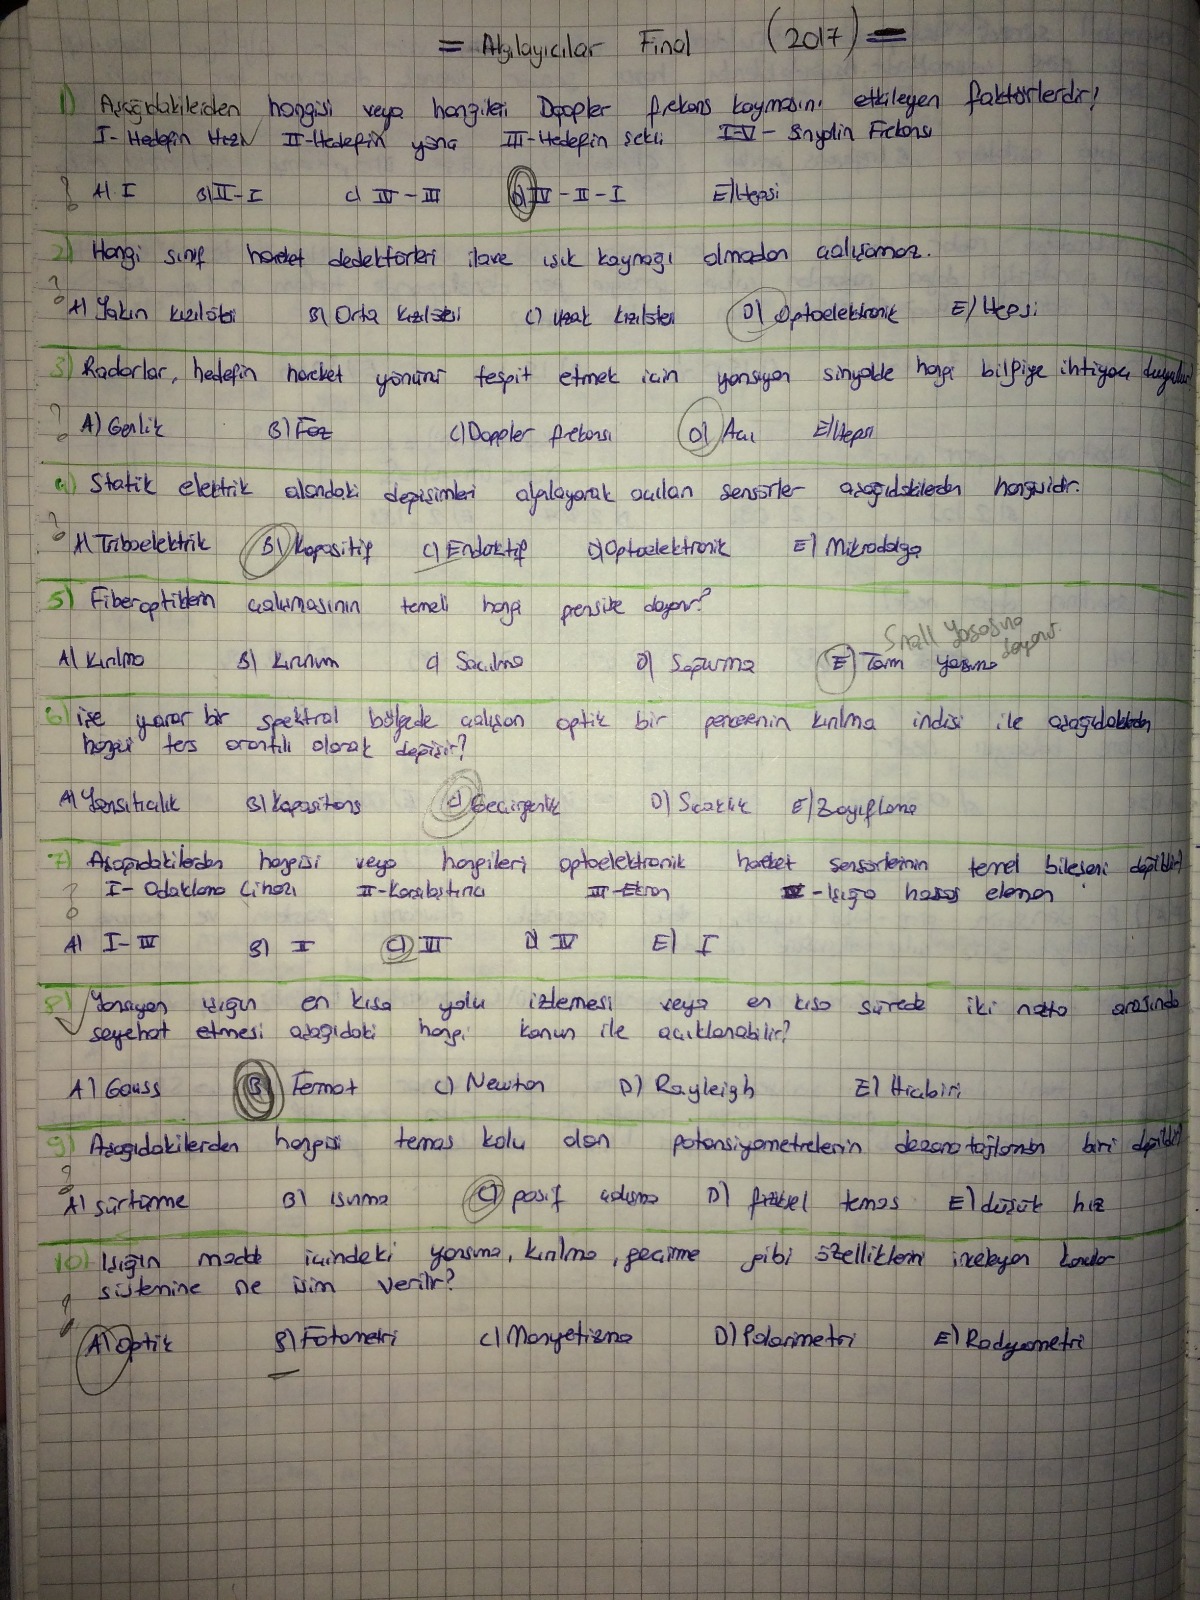 = Algılayıcılar Final (2017) =
1) Aşağıdakilerden hangisi veya hangileri Doppler frekans kaymasını etkileyen faktörlerdir?
I- Hedefin Hızı II-Hedefin yönü III-Hedefin şekli IV- Sinyalin Frekansı
A) I B) II-I C) IV-III D) IV-II-I E) Hepsi
2) Hangi sınıf hareket dedektörleri ilave ışık kaynağı olmadan çalışamaz.
A) Yakın kızılötesi B) Orta kızılötesi C) Uzak kızılötesi D) Optoelektronik E) Hepsi
3) Radarlar, hedefin hareket yönünü tespit etmek için yansıyan sinyalde hangi bilgiye ihtiyaç duyarlar
A) Genlik B) Faz C) Doppler frekansı D) Açı E) Hepsi
4) Statik elektrik alandaki değişimleri algılayarak çalışan sensörler aşağıdakilerden hangisidir.
A) Triboelektrik B) Kapasitif C) Endüktif D) Optoelektronik E) Mikrodalga
5) Fiberoptiklerin çalışmasının temeli hangi prensibe dayanır?
Snell Yasasına dayanır.
A) Kırılma B) Kırınım C) Saçılma D) Sapurma E) Tam yansıma
6) işe yarar bir spektral bölgede çalışan optik bir pencerenin kırılma indisi ile aşağıdakilerden
hangisi ters orantılı olarak değişir?
A) Yansıtıcılık B) Kapasitans C) Geçirgenlik D) Sıcaklık E) Zayıflama
7) Aşağıdakilerden hangisi veya hangileri optoelektronik hareket sensörlerinin temel bileşeni değildir?
I- Odaklama Cihazı II-Karşılaştırıcı III-Ekran IV-Işığa hassas eleman
A) I-IV B) II C) III D) IV E) I
8) Yansıyan ışığın en kısa yolu izlemesi veya en kısa sürede iki nokta arasında
seyehat etmesi aşağıdaki hangi kanun ile açıklanabilir?
A) Gauss B) Fermat C) Newton D) Rayleigh E) Hiçbiri
9) Aşağıdakilerden hangisi temas kolu olan potansiyometrelerin dezavantajlarından biri değildir?
A) sürtünme B) ısınma C) pasif çalışma D) fiziksel temas E) düşük hız
10) Işığın madde içindeki yansıma, kırılma, geçirme gibi özelliklerini inceleyen
sistemine ne isim verilir?
A) Optik B) Fotometri C) Manyetizma D) Polarimetri E) Radyometri